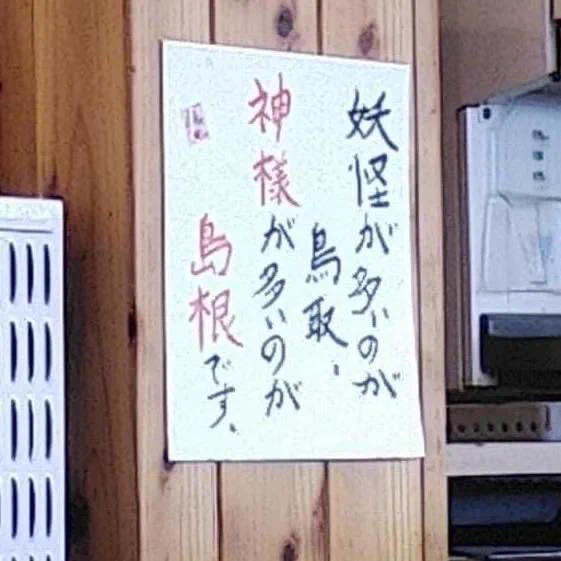 妖怪が多いのが
鳥取、
神様が多いのが
島根です、